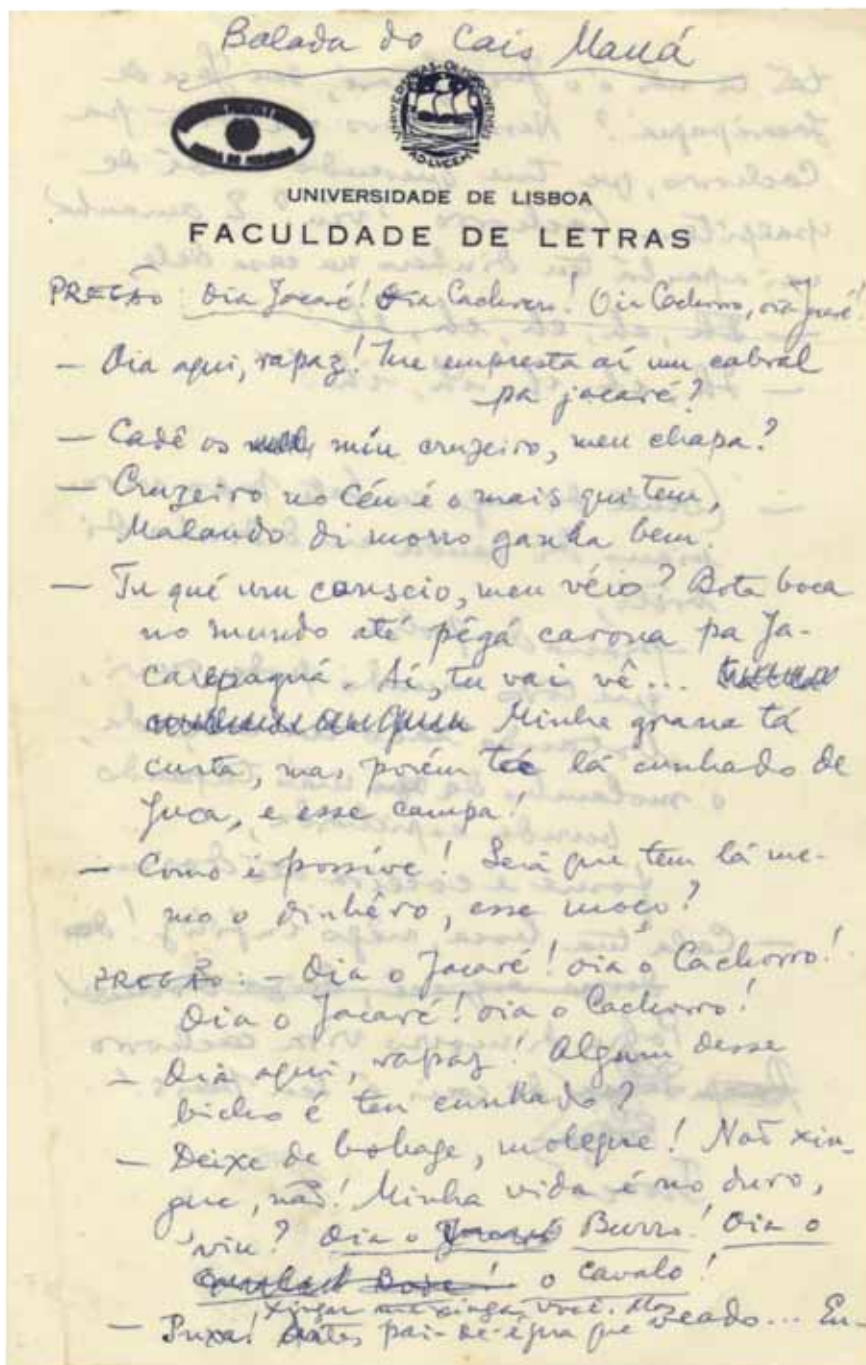 Balada do Cais Mauá
UNIVERSITAS OLISIPONENSIS
AD LUCEM
UNIVERSIDADE DE LISBOA
FACULDADE DE LETRAS
PREGÃO: Oia Jacaré! Oia Cachorro! Oia Cachorro, oia Jacaré!
— Oia aqui, rapaz! Me empresta aí um cabral
pa jacaré?
— Cadê os mir cruzeiro, meu chapa?
— Cruzeiro no Céu é o mais qui tem,
Malando di morro ganha bem.
— Tu qué um conseio, meu véio? Bota boca
no mundo até pégá carona pa Ja-
carepaguá. Aí, tu vai vê...
Minha grana tá
curta, mas porém tá lá cunhado de
Juca, e esse campa!
— Como é possíve! Será que tem lá me-
mo o dinhêro, esse moço?
PREGÃO: — Oia o Jacaré! oia o Cachorro!
Oia o Jacaré! oia o Cachorro!
— Oia aqui, rapaz! Algum desse
bicho é teu cunhado?
— Deixe de bobage, molegue! Não xin-
gue, não! Minha vida é no duro,
viu? Oia o Burro! Oia o
o Cavalo!
xingar
— Puxa! Antes pai-de-égua que veado... En-